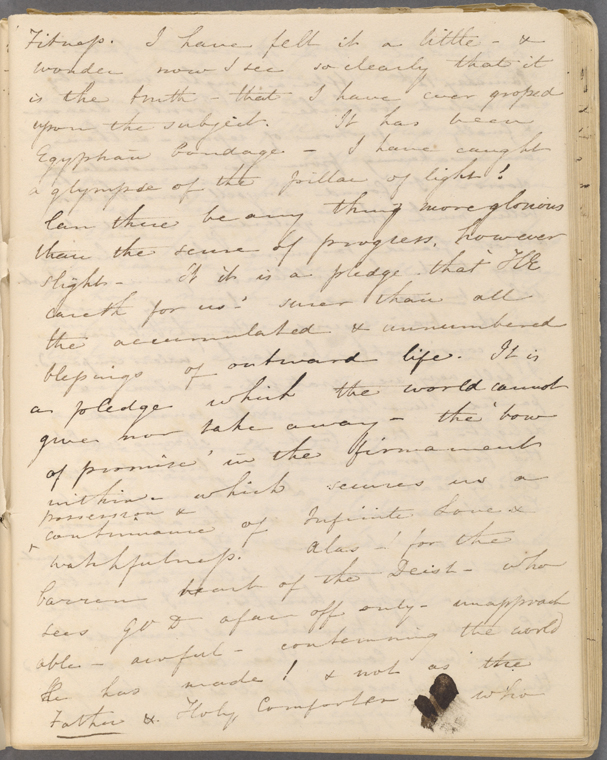 Fitness. I have felt it a little - &
wonder now I see so clearly that it
is the truth - that I have ever groped
upon the subject. It has been
Egyptian bondage - I have caught
a glympse of the pillar of light!
Can there be any thing more glorious
than the sense of progress, however
slight - it is a pledge that "HE
careth for us" surer than all
the accumulated & unnumbered
blessings of outward life. It is
a pledge which the world cannot
give nor take away - the 'bow
of promise' in the firmament
within - which secures us a
possession &
continuance of Infinite Love &
watchfulness. Alas -! for the
barren heart of the Deist - who
sees GOD afar off only - unapproach
able - awful - contemning the world
He has made! & not as the
Father & Holy Comforter who